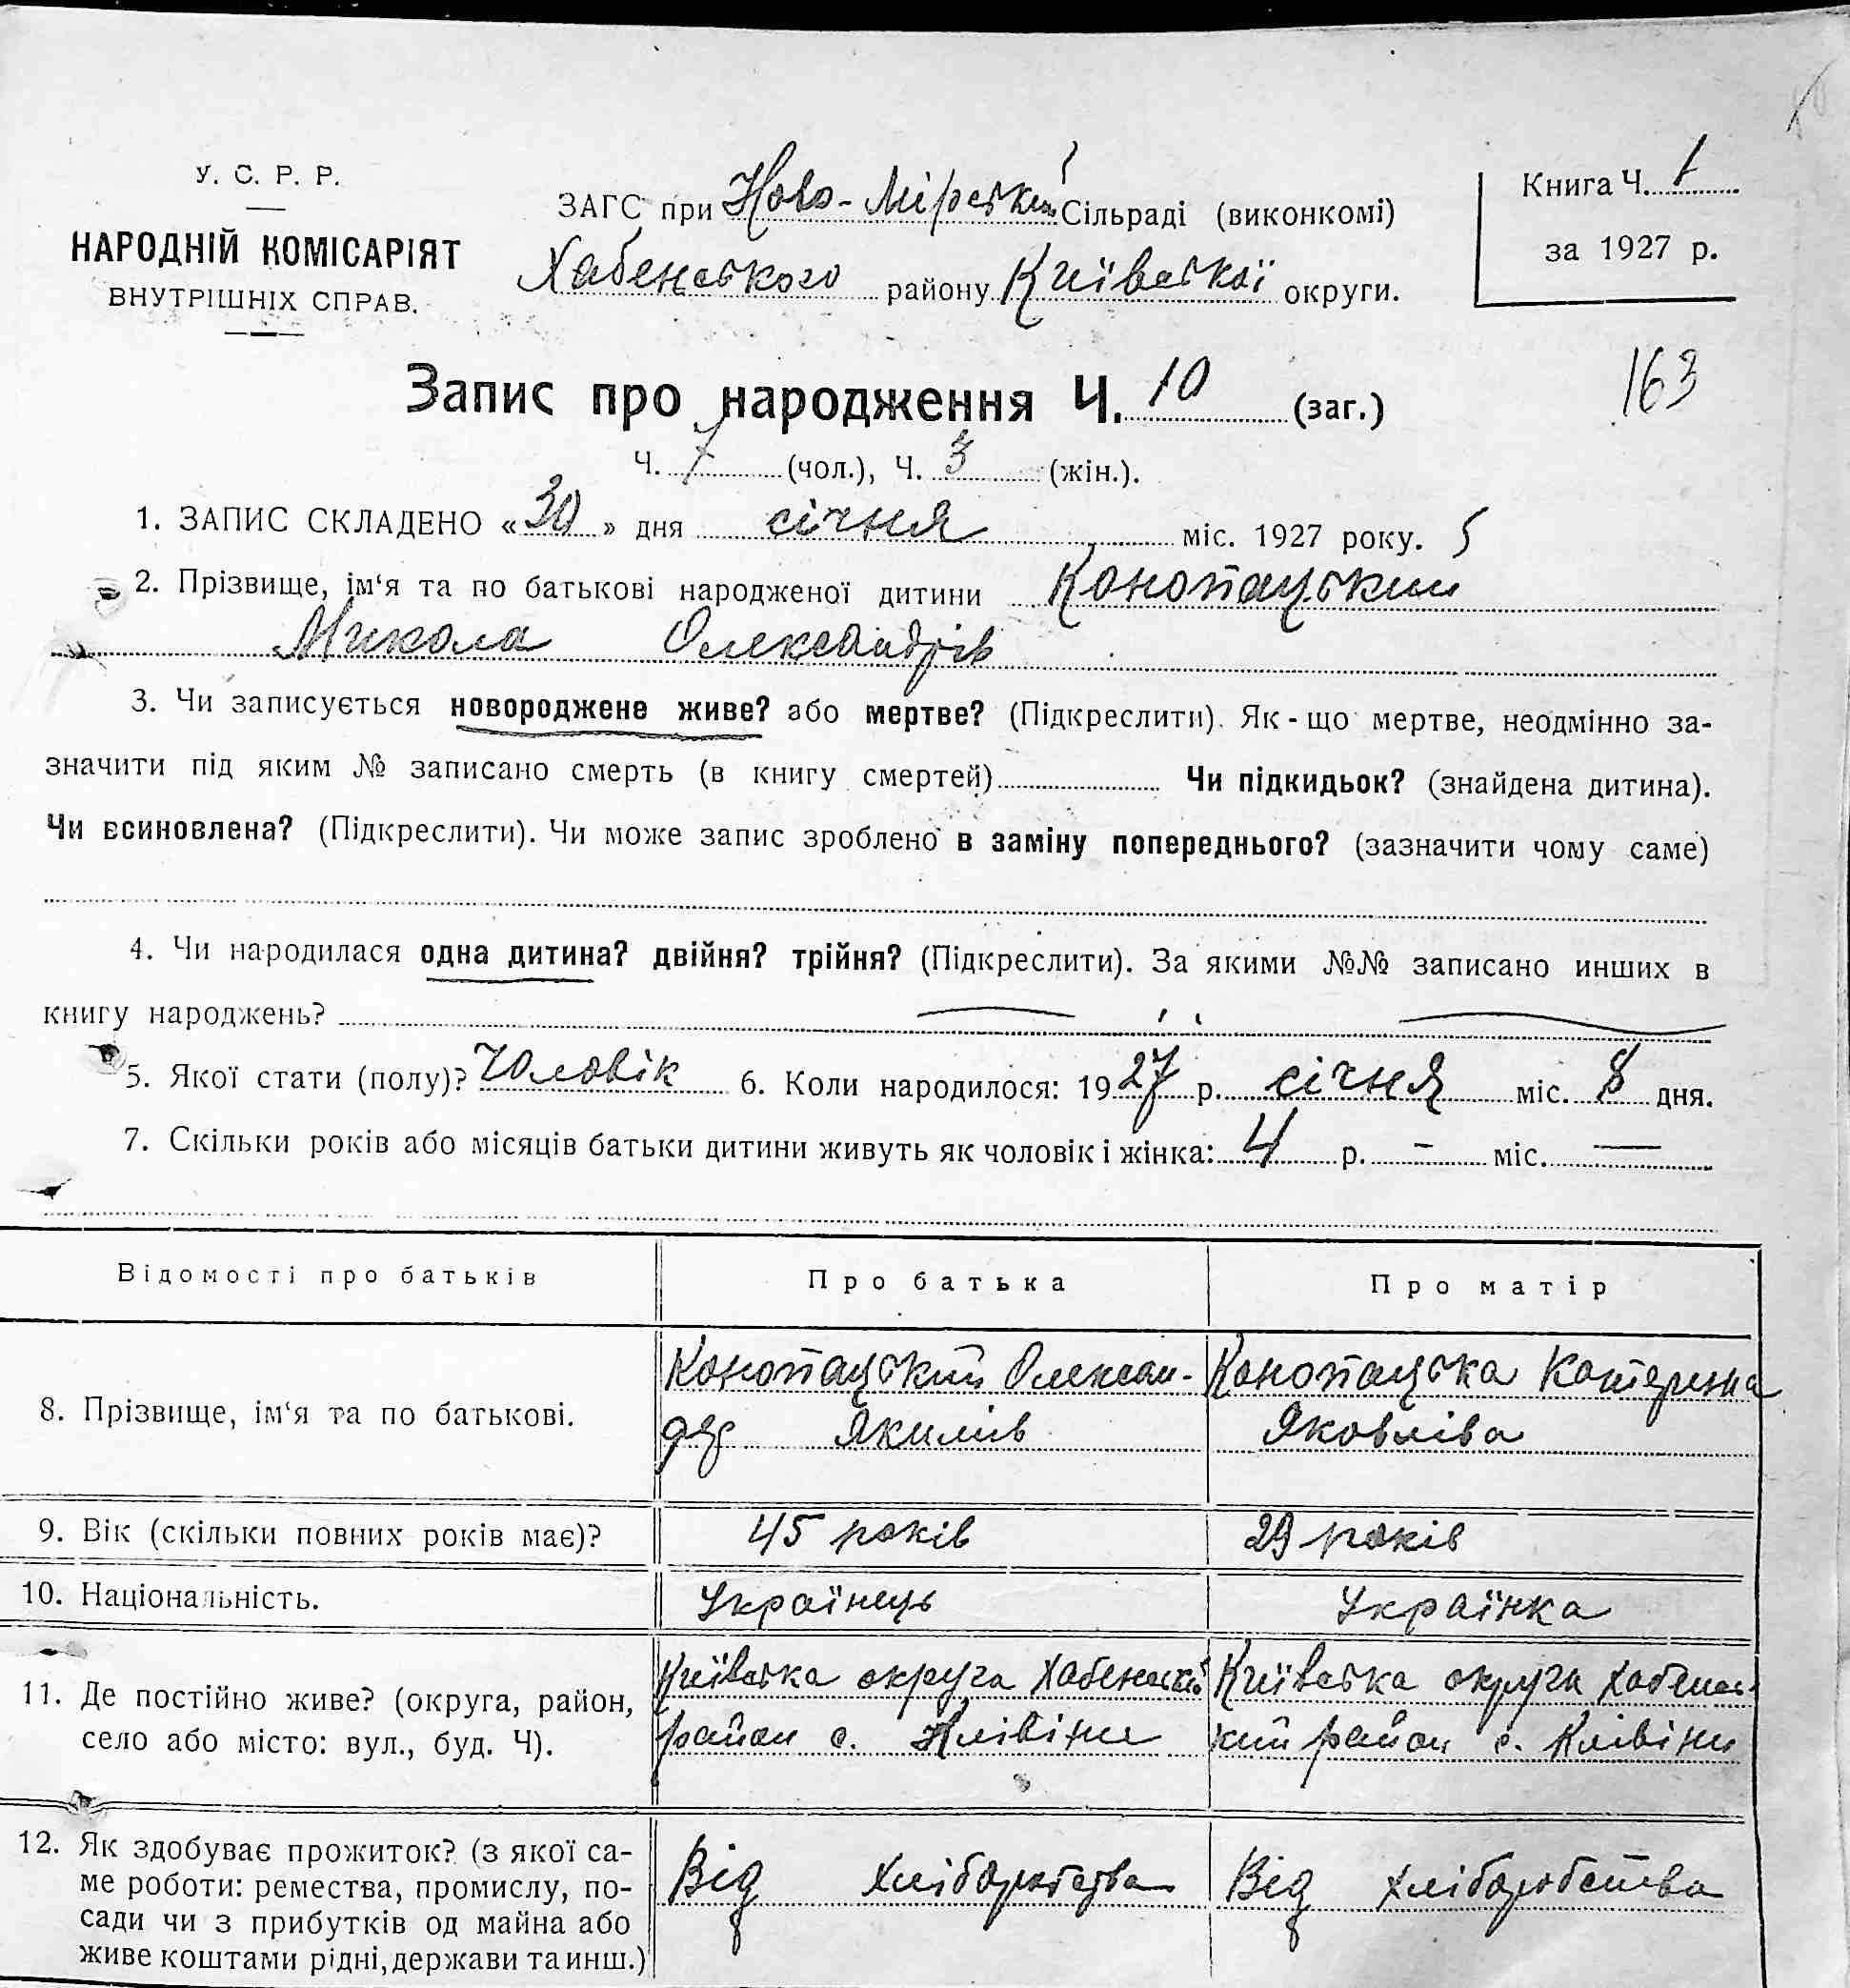 У. С. Р. Р.
НАРОДНІЙ КОМІСАРІЯТ
ВНУТРІШНІХ СПРАВ.
ЗАГС при Ново-Мірській Сільраді (виконкомі)
Хабенського району Київської округи.
Книга Ч. 1
за 1927 р.
163
Запис про народження Ч. 10 (заг.)
Ч. 7 (чол.), Ч. 3 (жін.).
1. ЗАПИС СКЛАДЕНО «30» дня січня міс. 1927 року.
2. Прізвище, ім‘я та по батькові народженої дитини Конопацький
Микола Олександрів
3. Чи записується новороджене живе? або мертве? (Підкреслити). Як-що мертве, неодмінно за-
значити під яким № записано смерть (в книгу смертей) Чи підкидьок? (знайдена дитина).
Чи всиновлена? (Підкреслити). Чи може запис зроблено в заміну попереднього? (зазначити чому саме)
4. Чи народилася одна дитина? двійня? трійня? (Підкреслити). За якими №№ записано инших в
книгу народжень?
5. Якої стати (полу)? Чоловік 6. Коли народилося: 1927 р. січня міс. 8 дня.
7. Скільки років або місяців батьки дитини живуть як чоловік і жінка: 4 р. - міс. —
Відомості про батьків Про батька Про матір
8. Прізвище, ім‘я та по батькові.
Конопацький Олексан-
др Якимів
Конопацька Катерина
Яковліва
9. Вік (скільки повних років має)? 45 років 29 років
10. Національність. Українець Українка
11. Де постійно живе? (округа, район,
село або місто: вул., буд. Ч).
Київська округа Хабенський
район с. Клівіни
Київська округа Хабенсь-
кий район с. Клівіни
12. Як здобуває прожиток? (з якої са-
ме роботи: ремества, промислу, по-
сади чи з прибутків од майна або
живе коштами рідні, держави та инш.)
Від хліборобства
Від хліборобства